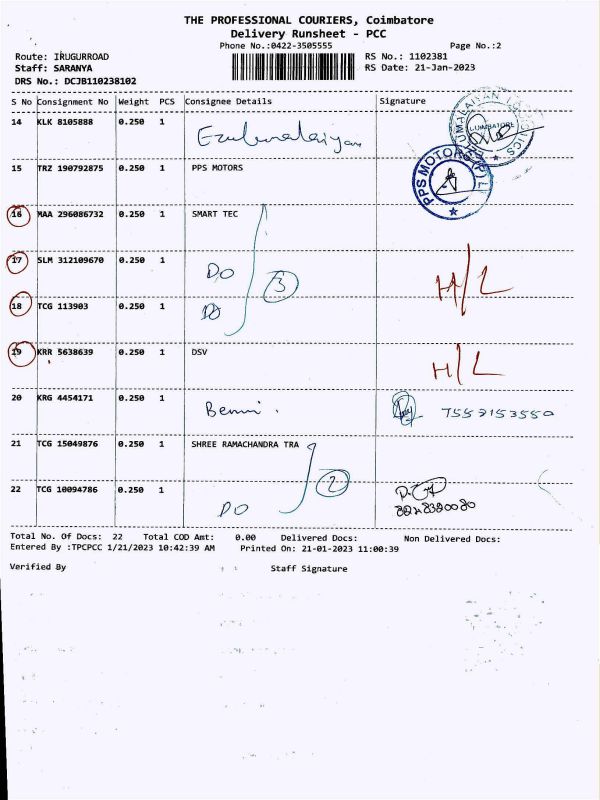 THE PROFESSIONAL COURIERS, Coimbatore
Delivery Runsheet - PCC
Phone No.:0422-3505555 Page No.:2
Route: IRUGURROAD RS No.: 1102381
Staff: SARANYA RS Date: 21-Jan-2023
DRS No.: DCJB110238102
S No Consignment No Weight PCS Consignee Details Signature
14 KLK 8105888 0.250 1 Ezhumalaiyan
COIMBATORE
15 TRZ 190792875 0.250 1 PPS MOTORS
PPS MOTORS
16 MAA 296086732 0.250 1 SMART TEC
17 SLM 312109670 0.250 1 DO 3 H/L
18 TCG 113903 0.250 1 DO
19 KRR 5638639 0.250 1 DSV H/L
20 KRG 4454171 0.250 1
21 TCG 15049876 0.250 1 SHREE RAMACHANDRA TRA
22 TCG 10094786 0.250 1 DO 2
Total No. Of Docs: 22 Total COD Amt: 0.00 Delivered Docs: Non Delivered Docs:
Entered By :TPCPCC 1/21/2023 10:42:39 AM Printed On: 21-01-2023 11:00:39
Verified By Staff Signature